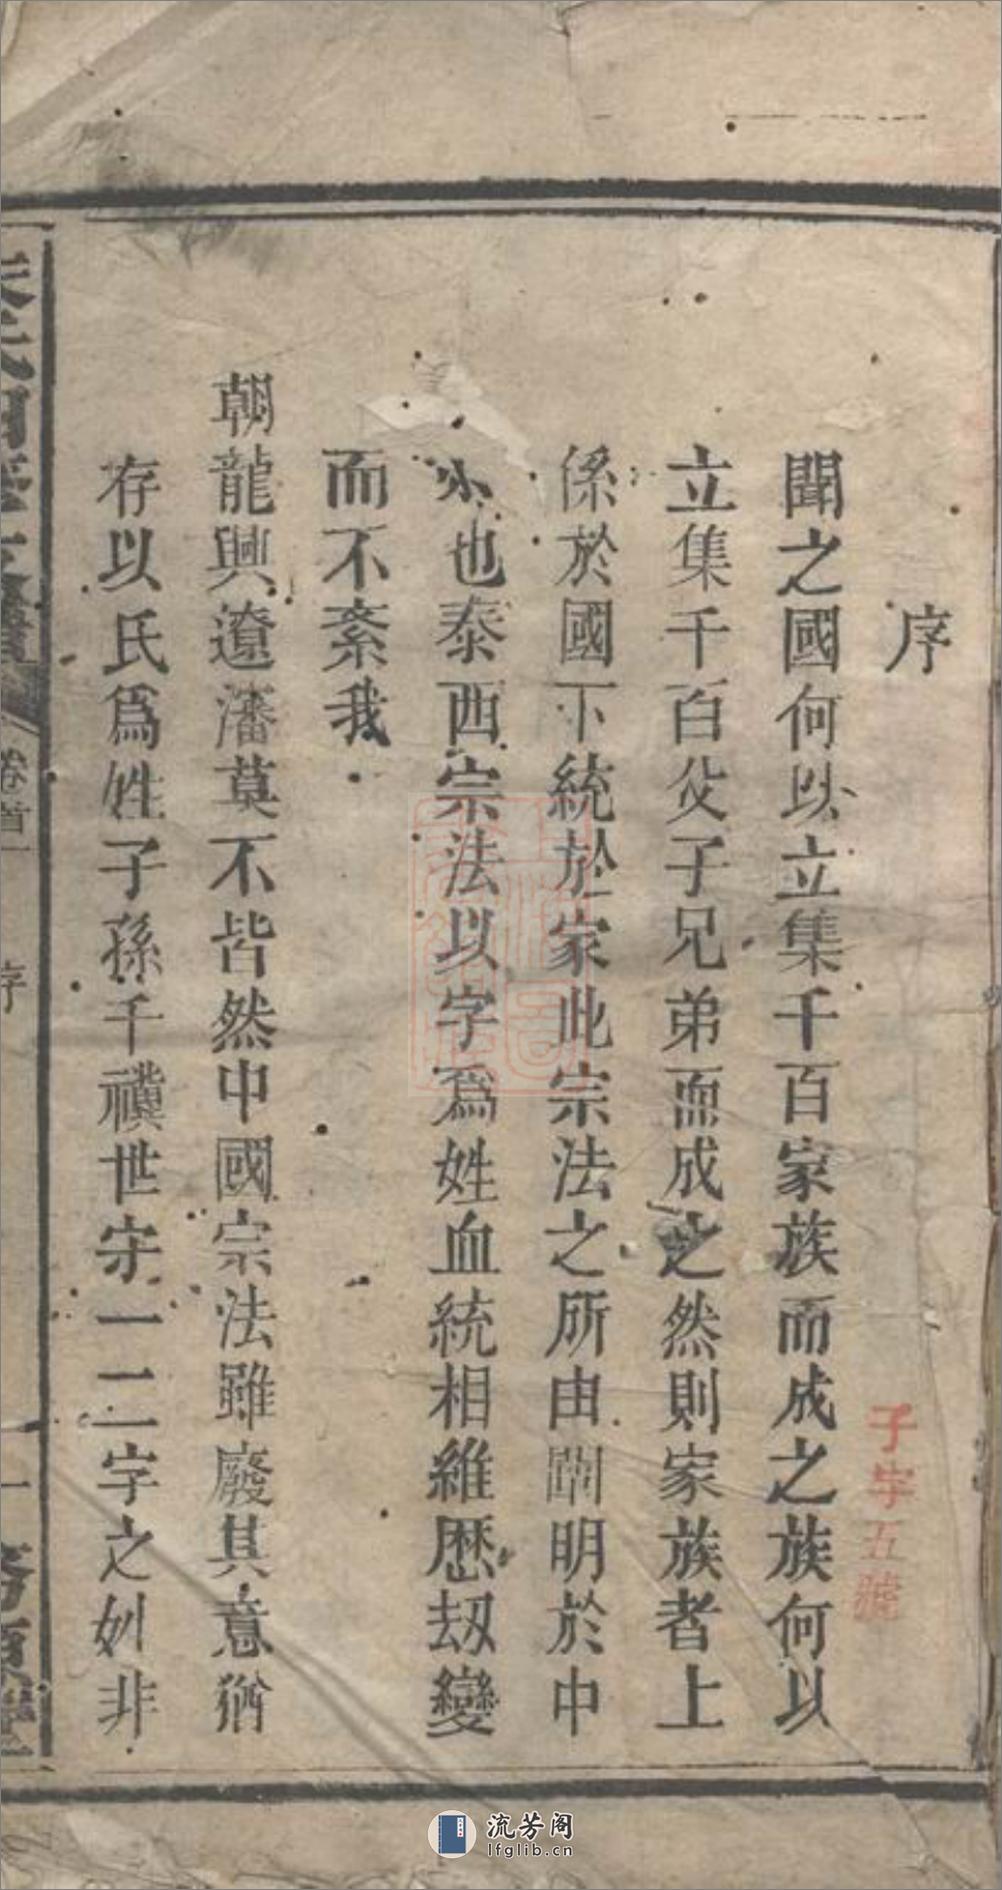 序
聞之國何以立集千百家族而成之族何以
立集千百父子兄弟而成之然則家族者上
係於國下統於家此宗法之所由闡明於中
外也泰西宗法以字爲姓血統相維歷劫變
而不紊我
朝龍興遼瀋莫不皆然中國宗法雖廢其意猶
存以氏爲姓子孫千禩世守一二字之姓非
子字五號
卷首一
序
一
流芳阁
lfglib.cn